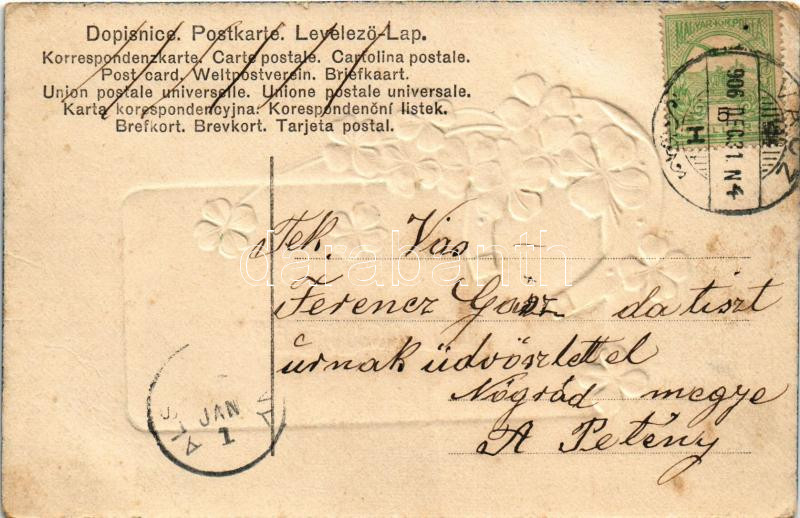 Dopisnice. Postkarte. Levélező-Lap.
Korrespondenzkarte. Carte postale. Cartolina postale.
Post card. Weltpostverein. Briefkaart.
Union postale universelle. Unione postale universale.
Karta korespondencyjna. Korespondenční listek.
Brefkort. Brevkort. Tarjeta postal.
MAGYAR KIR. POSTA
906 DEC. 31. N 4
H
Tek. Vas
Ferencz Gaiz da tiszt
úrnak üdvözlettel
Nógrád megye
A Petény
JAN
1
darabanth